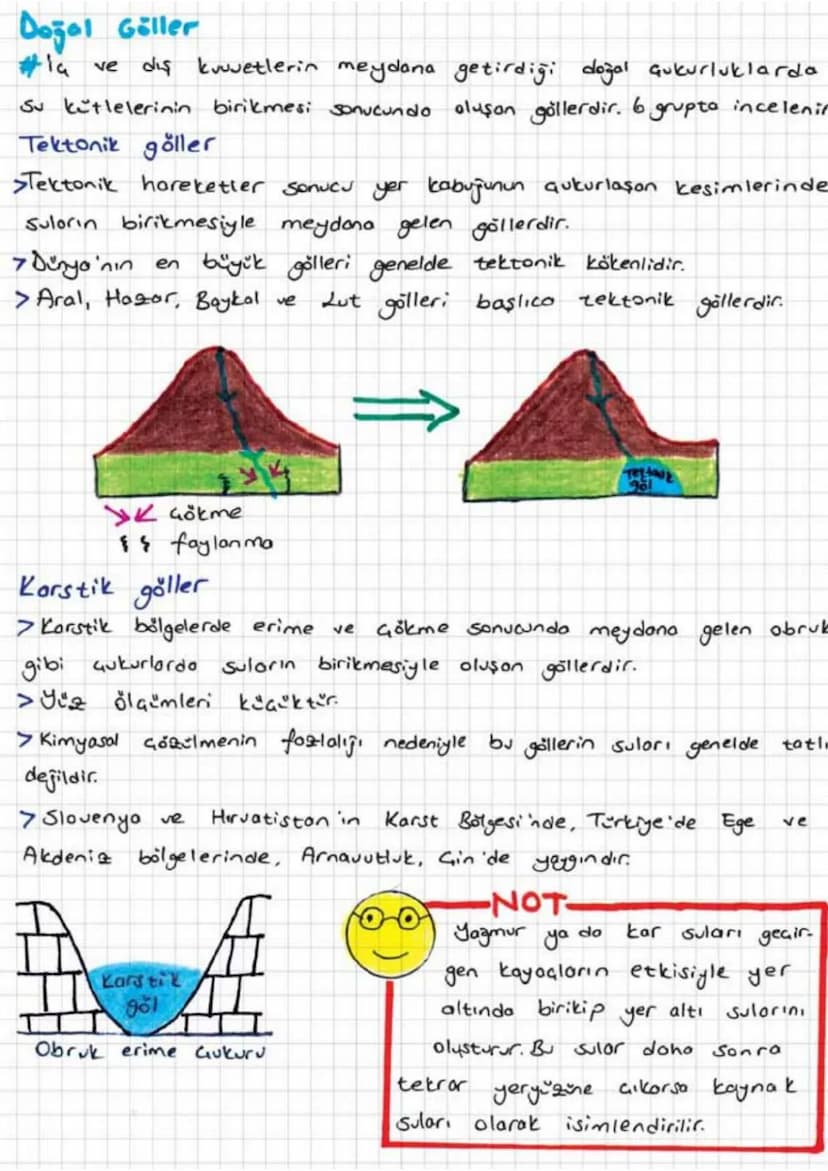 Doğal Göller
#İç ve dış kuvvetlerin meydana getirdiği doğal çukurluklarda
su kütlelerinin birikmesi sonucunda oluşan göllerdir. 6 grupta incelenir
Tektonik göller
>Tektonik hareketler sonucu yer kabuğunun çukurlaşan kesimlerinde
suların birikmesiyle meydana gelen göllerdir.
>Dünya'nın en büyük gölleri genelde tektonik kökenlidir.
>Aral, Hazar, Baykal ve Lut gölleri başlıca tektonik göllerdir.
Tektonik
göl
çökme
faylanma
Karstik göller
>Karstik bölgelerde erime ve çökme sonucunda meydana gelen obruk
gibi çukurlarda suların birikmesiyle oluşan göllerdir.
>Yüz ölçümleri küçüktür.
>Kimyasal çözülmenin fazlalığı nedeniyle bu göllerin suları genelde tatlı
değildir.
>Slovenya ve Hırvatistan'ın Karst Bölgesi'nde, Türkiye'de Ege ve
Akdeniz bölgelerinde, Arnavutluk, Çin'de yaygındır.
Karstik
göl
Obruk erime çukuru
NOT
Yağmur ya da kar suları geçir-
gen kayaçların etkisiyle yer
altında birikip yer altı sularını
oluşturur. Bu sular daha sonra
tekrar yeryüzüne çıkarsa kaynak
suları olarak isimlendirilir.